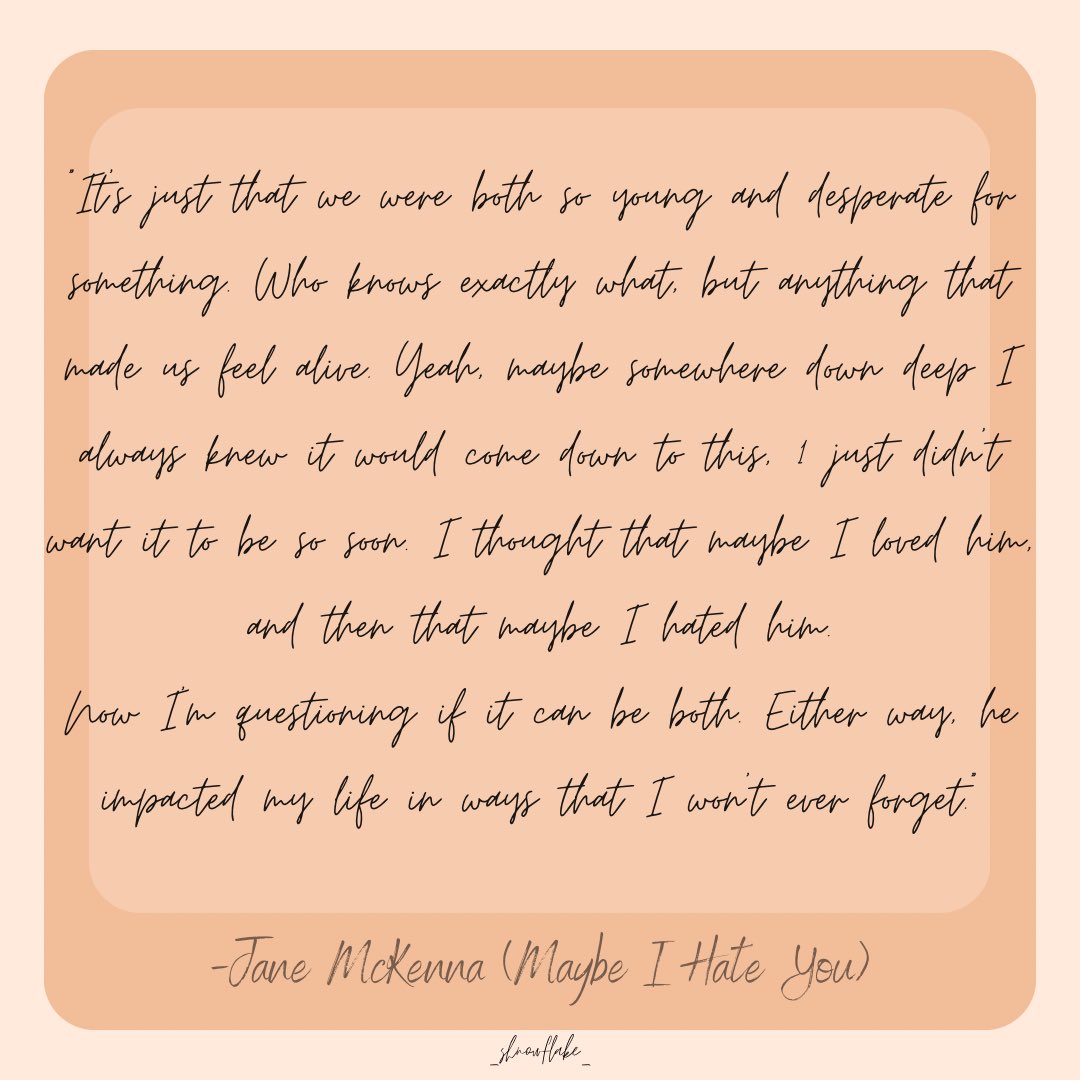 "It's just that we were both so young and desperate for
something. Who knows exactly what, but anything that
made us feel alive. Yeah, maybe somewhere down deep I
always knew it would come down to this, I just didn't
want it to be so soon. I thought that maybe I loved him,
and then that maybe I hated him.
Now I'm questioning if it can be both. Either way, he
impacted my life in ways that I won't ever forget."
-Jane McKenna (Maybe I Hate You)
_shnowflake_